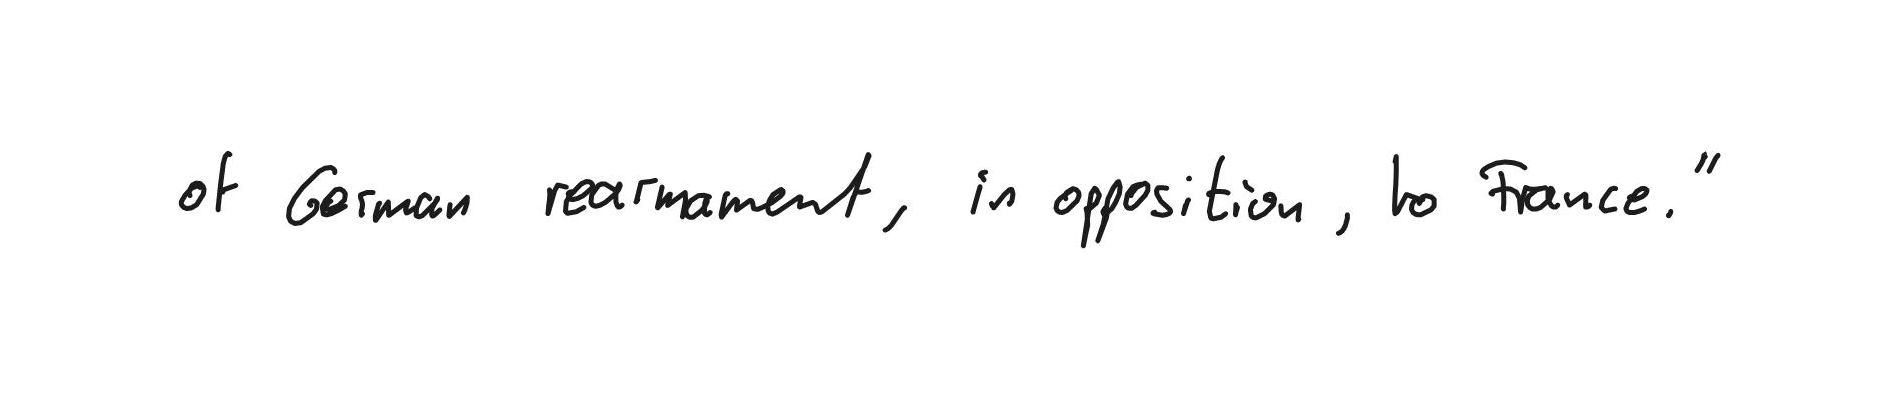 of German rearmament, in opposition, to France."